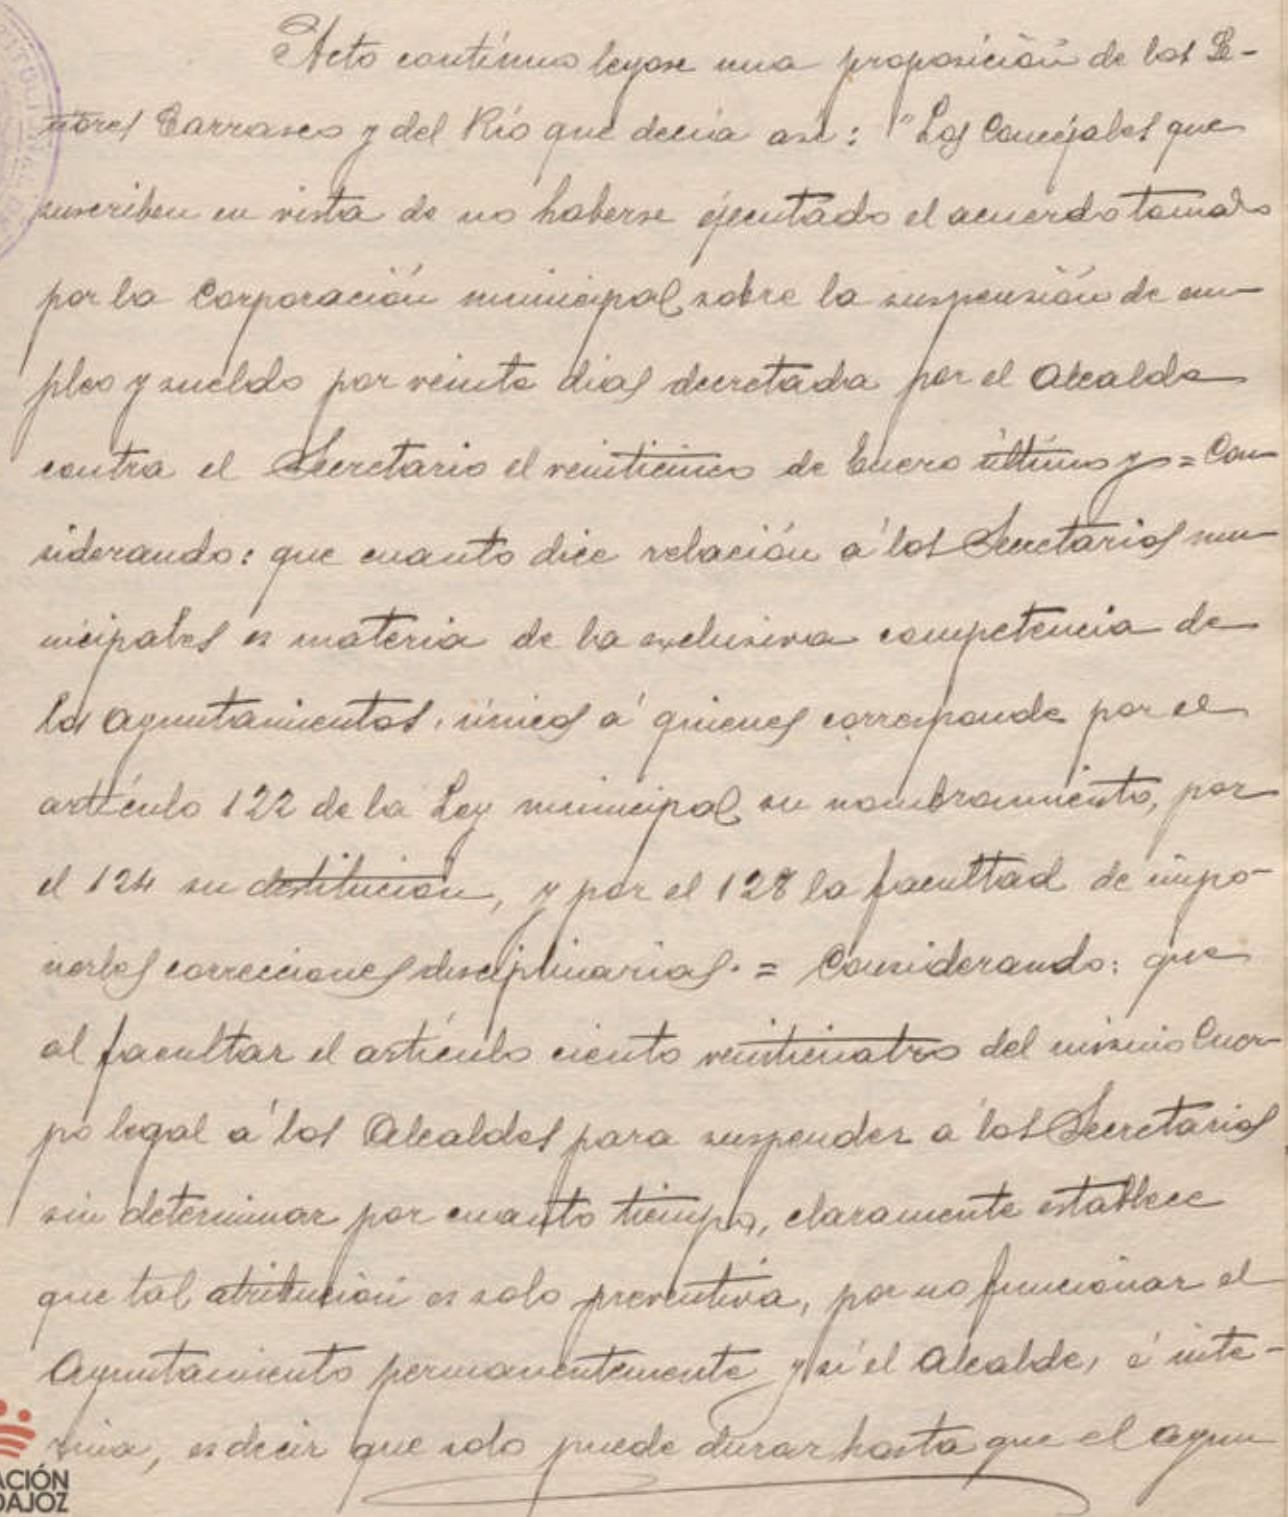 Acto contínuo leyose una proposición de los Se-
ñores Carrasco y del Río que decia asi: "Los Concejales que
suscriben en vista de no haberse ejecutado el acuerdo tomado
por la Corporación municipal sobre la suspensión de em-
pleo y sueldo por veinte dias decretada por el Alcalde
contra el Secretario el veinticinco de Enero último y = Con-
siderando: que cuanto dice relación á los Secretarios mu-
nicipales es materia de la exclusiva competencia de
los Ayuntamientos, únicos á quienes corresponde por el
artículo 122 de la Ley municipal su nombramiento, por
el 124 su destitución, y por el 128 la facultad de impo-
nerles correcciones disciplinarias. = Considerando: que
al facultar el artículo ciento veinticuatro del mismo Cuer-
po legal á los Alcaldes para suspender á los Secretarios
sin determinar por cuanto tiempo, claramente establece
que tal atribución es solo preventiva, por no funcionar el
Ayuntamiento permanentemente y si el Alcalde, é inte-
rina, es decir que solo puede durar hasta que el Ayun
ACIÓN
DAJOZ